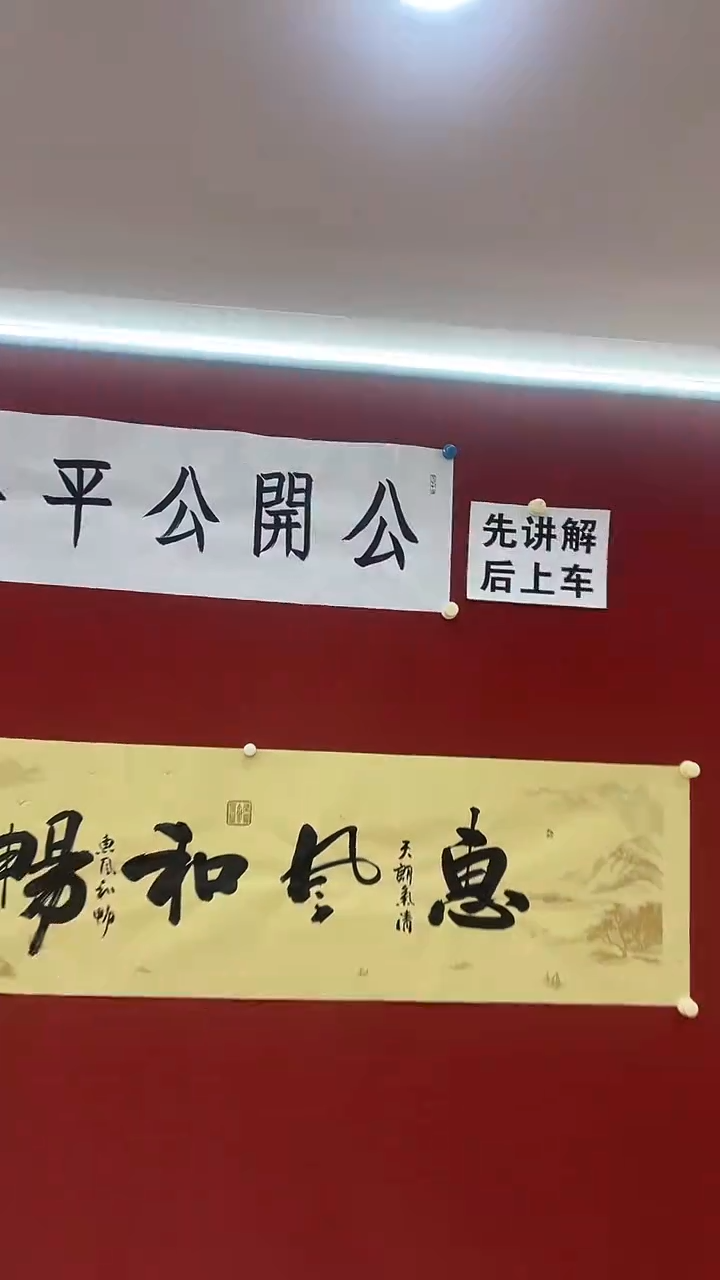 公開公平
先讲解
后上车
惠風和暢
天朗氣清
惠風和暢